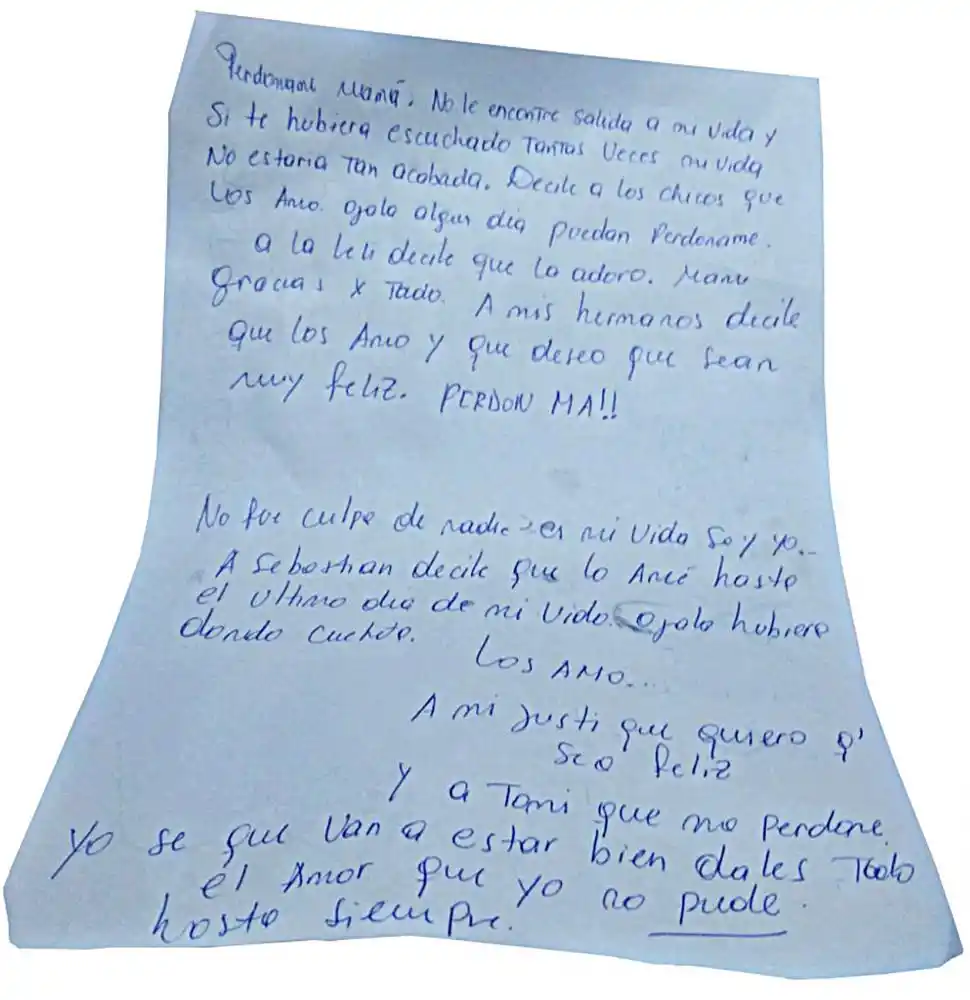 Perdoname Mamá. No le encontre salida a mi vida y
Si te hubiera escuchado Tantas Veces mi vida
No estaria Tan acabada. Decile a los chicos que
Los Amo. Ojala algun dia puedan Perdoname.
a la Leli decile que la adoro. Manu
gracias x Todo. A mis hermanos decile
que los Amo y que deseo que sean
muy feliz. PERDON MA!!
No fue culpa de nadie es mi Vida Soy yo..
A Sebastian decile que lo Amé hasta
el Ultimo dia de mi Vida. Ojala hubiera
dondo cuenta.
Los AMO...
A mi Justi que quiero q'
Sea feliz
Y a Tomi que me Perdone.
Yo se que Van a estar bien dales Todo
el Amor que yo no pude.
hasta siempre.